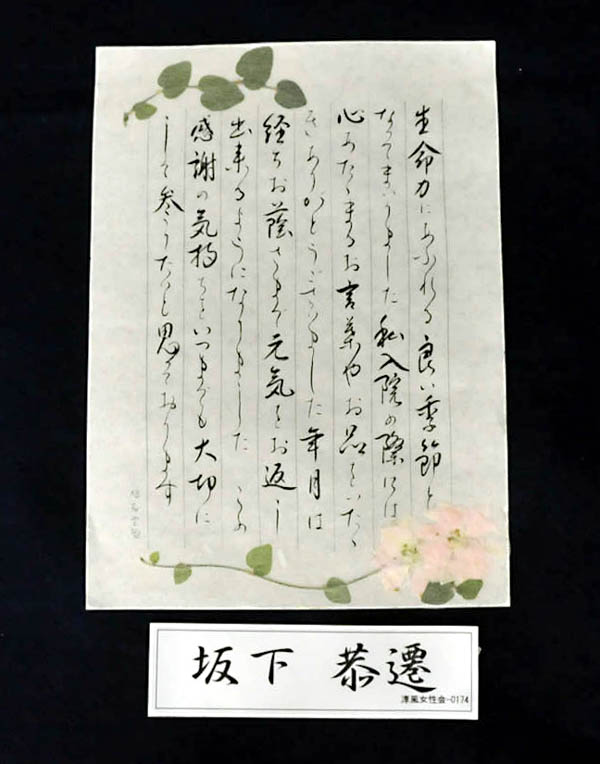 生命力にあふれる良い季節と
なってまいりました 私入院の際には
心あたゝまるお言葉やお品をいたゝ
きありがとうございました 年月は
経ちお蔭さまで元気をお返し
出来るようになりました この
感謝の気持ちをいつまでも大切に
して参りたいと思っております
坂下 恭遷
淳風女性会-0174